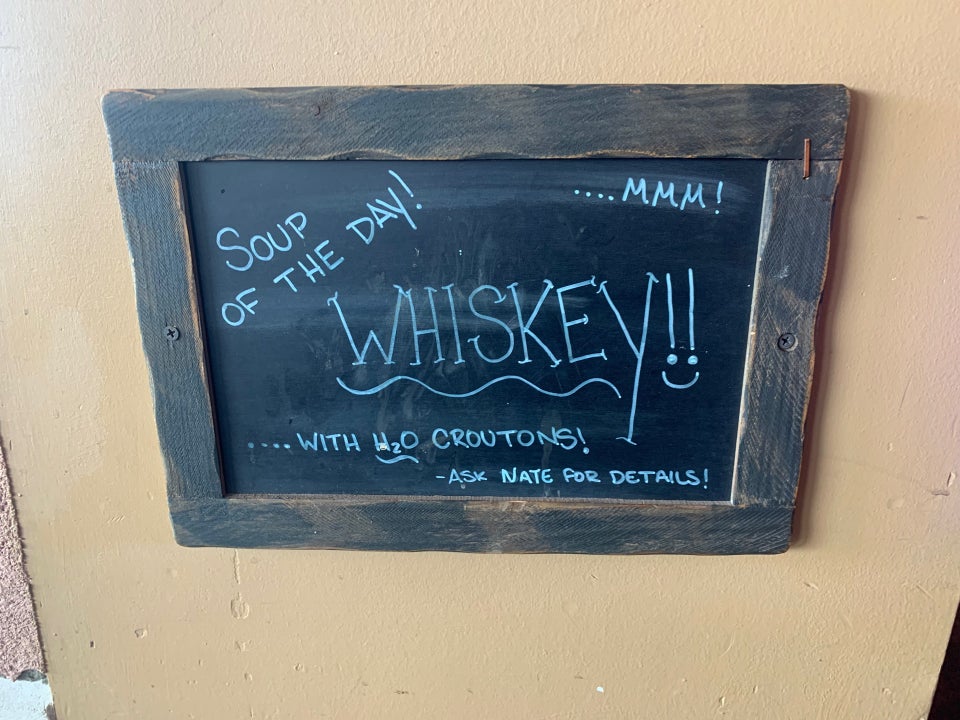 SOUP
OF THE DAY!
....MMM!
WHISKEY!!
....WITH H₂O CROUTONS!
-ASK NATE FOR DETAILS!